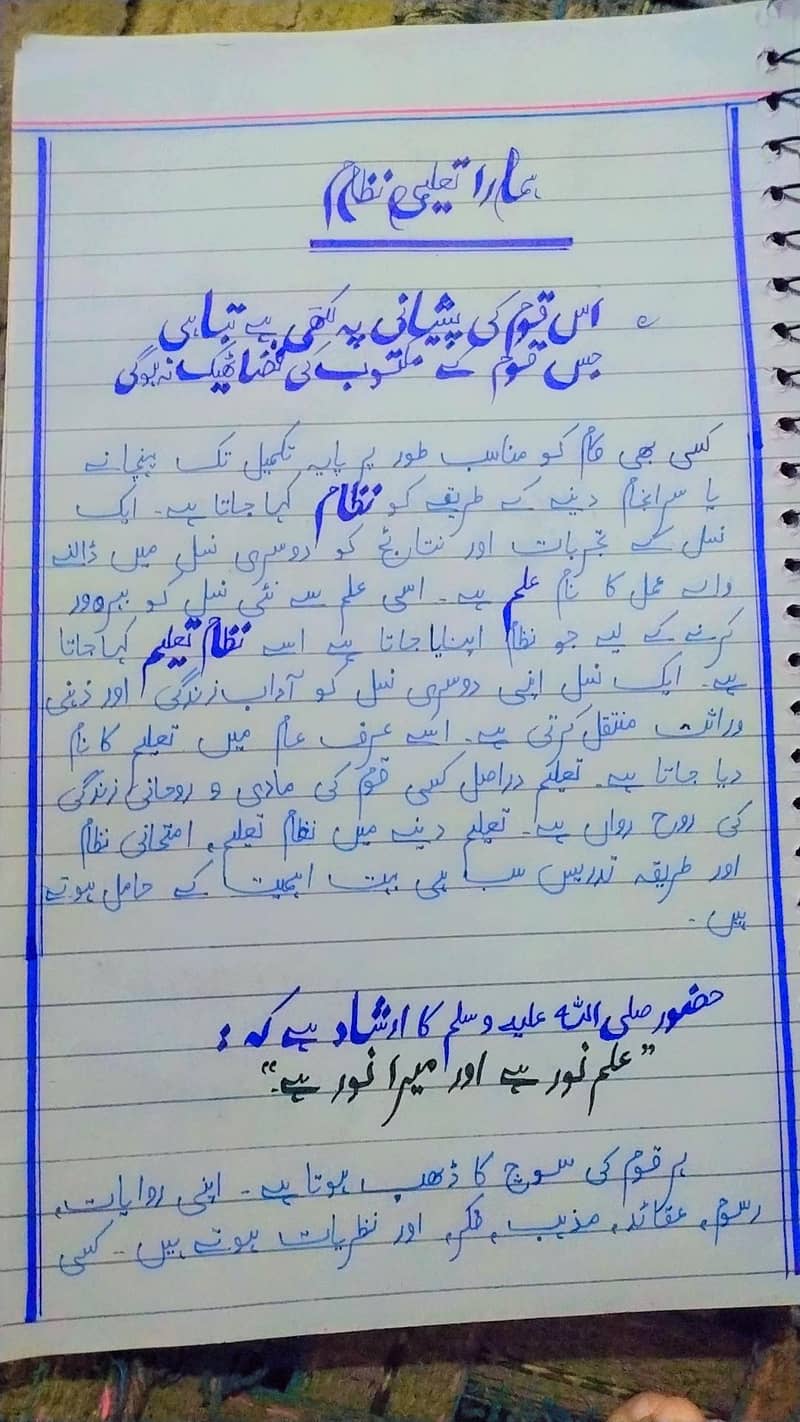 ہمارا تعلیمی نظام
اس قوم کی پیشانی پہ لکھی ہے تباہی
جس قوم کے مکتوب کی فضا ٹھیک نہ ہوگی
کسی بھی کام کو مناسب طور پر پایہ تکمیل تک پہنچانے
یا سرانجام دینے کے طریقے کو نظام کہا جاتا ہے۔ ایک
نسل کے تجربات اور نتاریج کو دوسری نسل میں ڈالنے
والے عمل کا نام علم ہے۔ اسی علم سے نئی نسل کو بہرہ ور
کرنے کے لیے جو نظام اپنایا جاتا ہے اسے نظام تعلیم کہا جاتا
ہے۔ ایک نسل اپنی دوسری نسل کو آداب زندگی اور ذہنی
وراثت منتقل کرتی ہے۔ اسے عرف عام میں تعلیم کا نام
دیا جاتا ہے۔ تعلیم دراصل کسی قوم کی مادی و روحانی زندگی
کی روح رواں ہے۔ تعلیم دینے میں نظام تعلیم، امتحانی نظام
اور طریقہ تدریس سب ہی بہت اہمیت کے حامل ہوتے
ہیں۔
حضور صلی اللہ علیہ وسلم کا ارشاد ہے کہ :
”علم نور ہے اور میرا نور ہے۔“
ہر قوم کی سوچ کا ڈھب ہوتا ہے۔ اپنی روایات،
رسوم، عقائد، مذہب، فکر، اور نظریات ہوتے ہیں۔ کسی